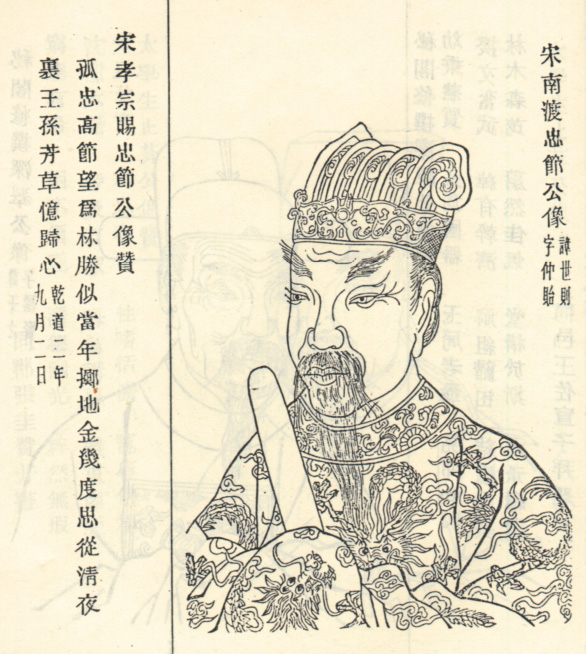 宋南渡忠節公像 諱世則
字仲貽
宋孝宗賜忠節公像贊
孤忠高節望爲林勝似當年擲地金幾度思從清夜
裏王孫芳草憶歸心 乾道二年
九月二日